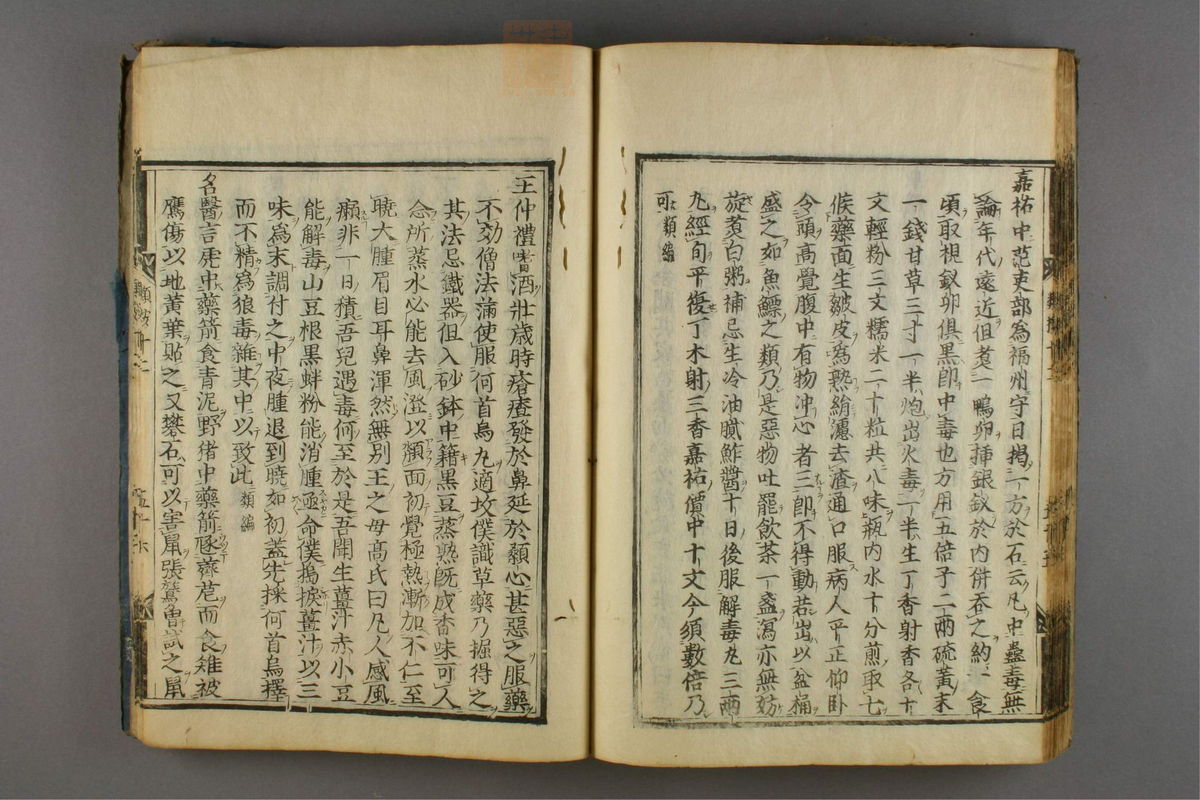 嘉祐中范吏部為福州守日揭一方於石云凡中蠱毒無
論年代遠近但煑一鴨卵挿銀釵於内併吞之約一食
頃取視釵卵俱黒卽中毒也方用五倍子二兩硫黃末
一錢甘草三寸一半炮出火毒一半生丁香射香各十
文輕粉三文糯米二十粒共八味瓶内水十分煎取七
候藥面生皺皮為熟絹濾去渣通口服病人平正仰卧
令頭高覺腹中有物冲心者三卽不得動若出以盆桶
盛之如魚鰾之類乃是惡物吐罷飲茶一盞瀉亦無妨
旋煑白粥補忌生冷油膩鮓醬十日後服解毒丸三兩
丸經旬平復丁木射三香嘉祐價中十文今須數倍乃
可 類編
王仲禮嗜酒壯歳時瘡瘂發於鼻延於顙心甚惡之服藥
不効僧法滿使服何首烏丸適坟僕識草藥乃掘得之
其法忌鐵器但入砂鉢中籍黒豆蒸熟既成香味可人
念所蒸水必能去風澄以頮面初覺極熱漸加不仁至
曉大腫眉目耳鼻渾然無別王之母高氏曰凡人感風
癩非一日積吾兒遇毒何至於是吾聞生薑汁赤小豆
能解毒山豆根黒蚌粉能消腫亟命僕搗捩薑汁以三
味為末調付之中夜腫退到曉如初蓋先採何首烏擇
而不精為狼毒雜其中以致此 類編
名醫言虎中藥箭食青泥野猪中藥箭豗薺苨而食雉被
鷹傷以地黃葉貼之又礬石可以害鼠張鷟曾試之鼠